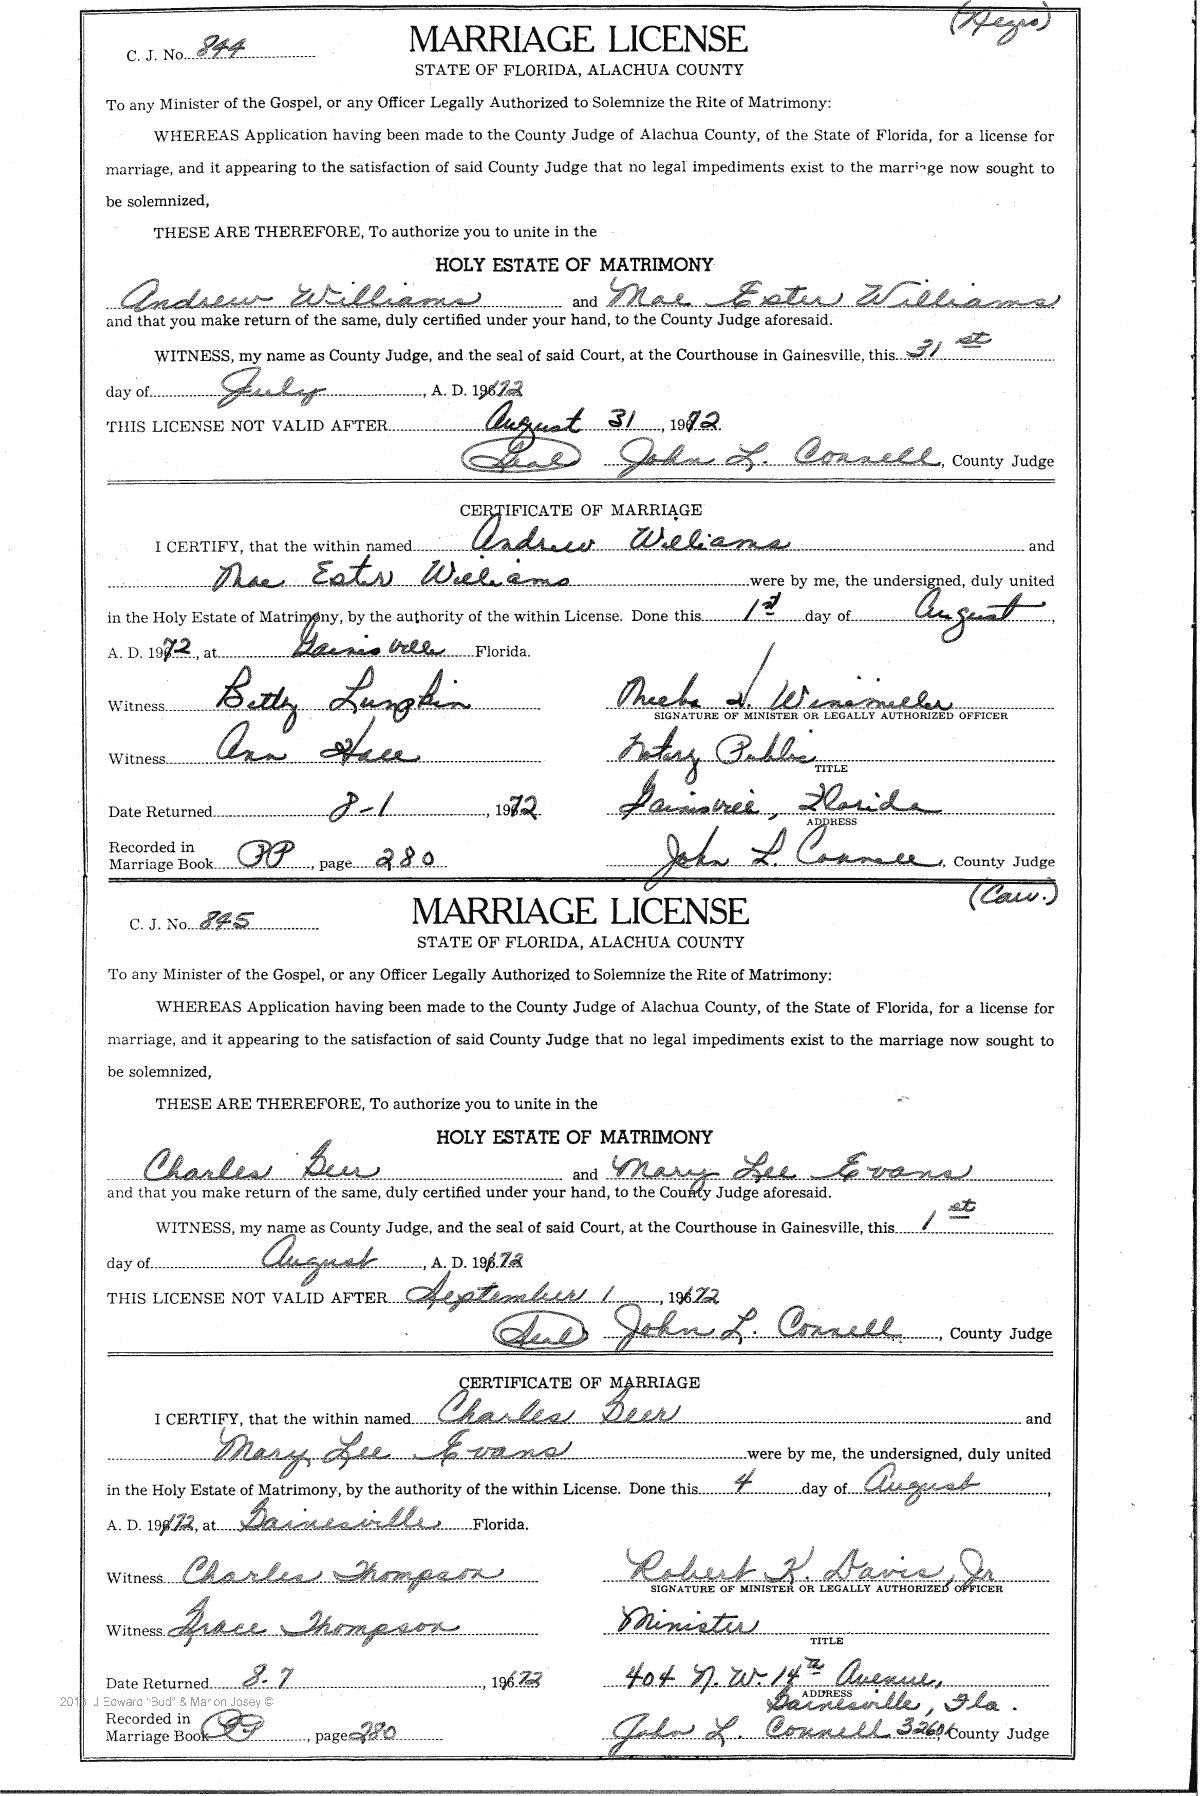 (Negro)
C. J. No. 844
MARRIAGE LICENSE
STATE OF FLORIDA, ALACHUA COUNTY
To any Minister of the Gospel, or any Officer Legally Authorized to Solemnize the Rite of Matrimony:
WHEREAS Application having been made to the County Judge of Alachua County, of the State of Florida, for a license for
marriage, and it appearing to the satisfaction of said County Judge that no legal impediments exist to the marriage now sought to
be solemnized,
THESE ARE THEREFORE, To authorize you to unite in the
HOLY ESTATE OF MATRIMONY
Andrew Williams and Mae Ester Williams
and that you make return of the same, duly certified under your hand, to the County Judge aforesaid.
WITNESS, my name as County Judge, and the seal of said Court, at the Courthouse in Gainesville, this 31st
day of July, A. D. 1972
THIS LICENSE NOT VALID AFTER August 31, 1972.
(Seal) John L. Connell, County Judge
CERTIFICATE OF MARRIAGE
I CERTIFY, that the within named Andrew Williams and
Mae Ester Williams were by me, the undersigned, duly united
in the Holy Estate of Matrimony, by the authority of the within License. Done this 1st day of August,
A. D. 1972, at Gainesville Florida.
Witness Betty Lungkin
SIGNATURE OF MINISTER OR LEGALLY AUTHORIZED OFFICER
Witness Ann Hall Notary Public
TITLE
Date Returned 8-1, 1972 Gainesville, Florida
ADDRESS
Recorded in
Marriage Book PP, page 280 John L. Connell, County Judge
(Cau.)
C. J. No. 845
MARRIAGE LICENSE
STATE OF FLORIDA, ALACHUA COUNTY
To any Minister of the Gospel, or any Officer Legally Authorized to Solemnize the Rite of Matrimony:
WHEREAS Application having been made to the County Judge of Alachua County, of the State of Florida, for a license for
marriage, and it appearing to the satisfaction of said County Judge that no legal impediments exist to the marriage now sought to
be solemnized,
THESE ARE THEREFORE, To authorize you to unite in the
HOLY ESTATE OF MATRIMONY
Charles Geer and Mary Lee Evans
and that you make return of the same, duly certified under your hand, to the County Judge aforesaid.
WITNESS, my name as County Judge, and the seal of said Court, at the Courthouse in Gainesville, this 1st
day of August, A. D. 1972
THIS LICENSE NOT VALID AFTER September 1, 1972
(Seal) John L. Connell, County Judge
CERTIFICATE OF MARRIAGE
I CERTIFY, that the within named Charles Geer and
Mary Lee Evans were by me, the undersigned, duly united
in the Holy Estate of Matrimony, by the authority of the within License. Done this 4 day of August,
A. D. 1972, at Gainesville Florida.
Witness Charles Thompson Robert K. Davis, Jr
SIGNATURE OF MINISTER OR LEGALLY AUTHORIZED OFFICER
Witness Grace Thompson Minister
TITLE
Date Returned 8-7, 1972 404 N. W. 14th Avenue,
ADDRESS
Gainesville, Fla.
J Edward "Bud" & Marion Josey ©
Recorded in
Marriage Book PP, page 280 John L. Connell 32601 County Judge